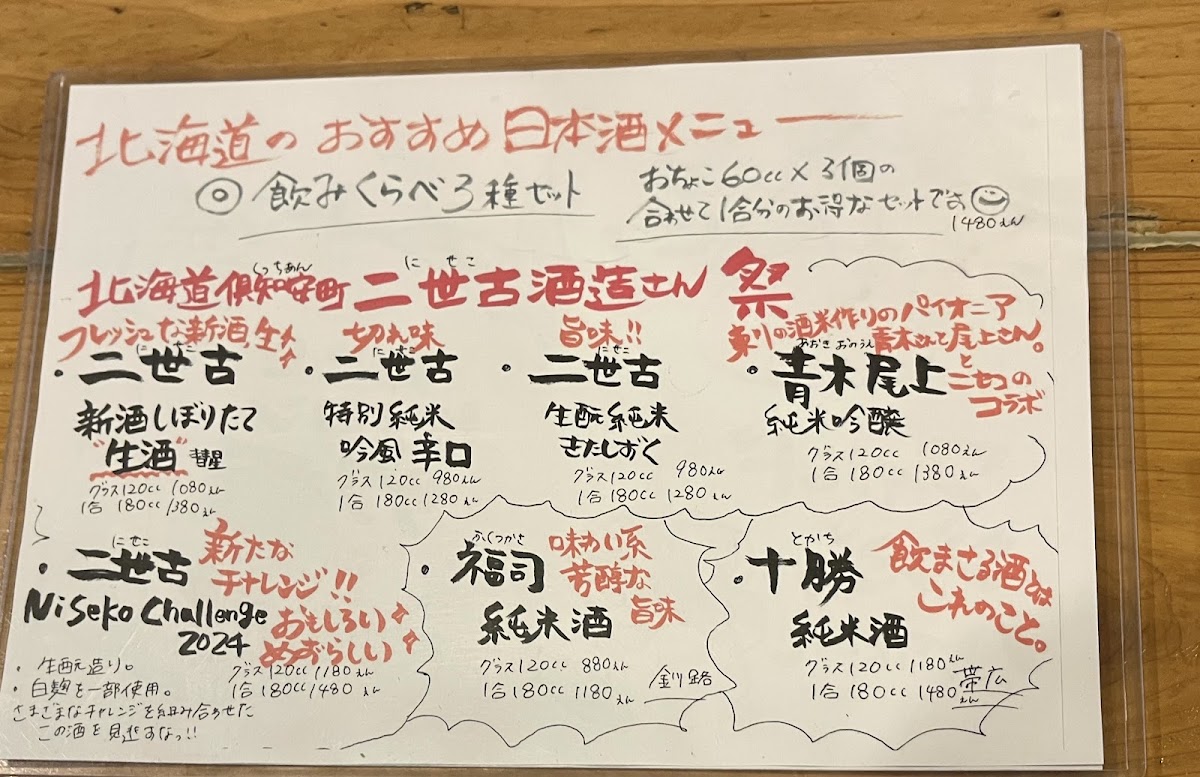 北海道の おすすめ 日本酒メニュー
◎ 飲みくらべ 3種セット
おちょこ60cc×3個の
合わせて1合分のお得なセットです。
1480えん
くっちあん にせこ
北海道倶知安町 二世古酒造さん 祭
フレッシュな新酒、生
にせこ
・二世古
新酒しぼりたて
"生酒" 彗星
グラス120cc 1080えん
1合 180cc 1380えん
切れ味
にせこ
・二世古
特別純米
吟風 辛口
グラス120cc 980えん
1合 180cc 1280えん
旨味!!
にせこ
・二世古
生酛純米
きたしずく
グラス120cc 980えん
1合 180cc 1280えん
の酒米作りのパイオニア
青木さんと尾上さん。
と
ニセコの
コラボ
あおき おのうえ
・青木尾上
純米吟醸
グラス120cc 1080えん
1合 180cc 1380えん
にせこ
・二世古
新たな
チャレンジ!!
Niseko Challenge
2024
おもしろい
めずらしい
・生酛造り。
・白麹を一部使用。
さまざまなチャレンジを組み合わせた
この酒を見逃すなっ!!
グラス120cc 1180えん
1合 180cc 1480えん
ふくつかさ
・福司
純米酒
味わい系
芳醇な
旨味
グラス120cc 880えん
1合 180cc 1180えん
釧路
とかち
・十勝
純米酒
飲まさる酒とは
これのこと。
グラス120cc 1180えん
1合 180cc 1480えん
帯広